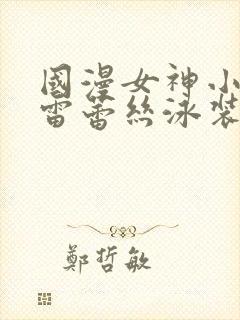 國漫女神小
雷蕾絲泳裝
鄭哲敏